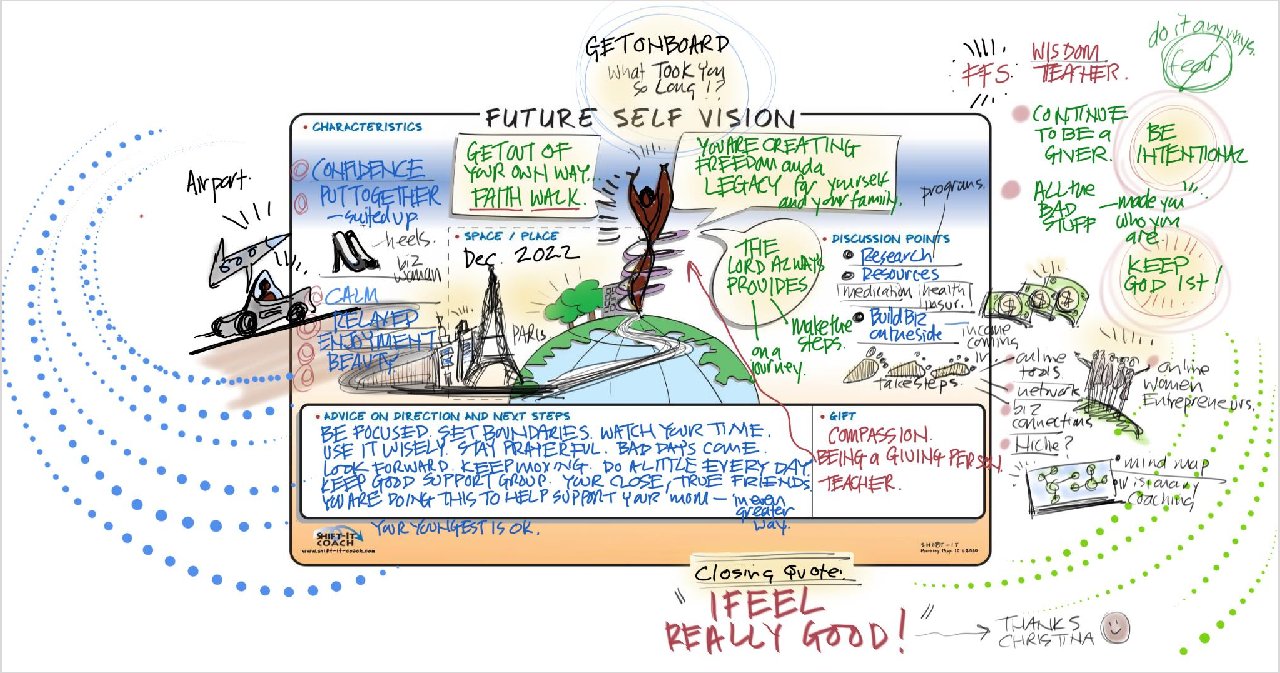 GET ON BOARD
What Took You
So Long!?
do it anyways.
fear
FFS
WISDOM
TEACHER.
FUTURE SELF VISION
CHARACTERISTICS
CONFIDENCE
PUT TOGETHER
– suited up
heels.
biz
woman
CALM
RELAXED
ENJOYMENT
BEAUTY
Airport.
GET OUT OF
YOUR OWN WAY.
FAITH WALK.
YOU ARE CREATING
FREEDOM and a
LEGACY for yourself
and your family.
SPACE / PLACE
Dec. 2022
PARIS
THE
LORD ALWAYS
PROVIDES.
on a
journey.
make the
steps.
programs
DISCUSSION POINTS
Research
Resources
medication health
insur.
Build Biz
online side
take steps.
income
coming
in.
online
tools
network
biz
connections
Niche?
online
women
Entrepreneurs.
mind map
visionary
coaching
CONTINUE
TO BE A
GIVER.
BE
INTENTIONAL
ALL THE
BAD
STUFF
– made you
who you
are.
KEEP
GOD 1st!
ADVICE ON DIRECTION AND NEXT STEPS
BE FOCUSED. SET BOUNDARIES. WATCH YOUR TIME.
USE IT WISELY. STAY PRAYERFUL. BAD DAYS COME.
LOOK FORWARD. KEEP MOVING. DO A LITTLE EVERY DAY
KEEP GOOD SUPPORT GROUP. YOUR CLOSE, TRUE FRIENDS
YOU ARE DOING THIS TO HELP SUPPORT YOUR MOM –
in even
greater
way.
YOUR YOUNGEST IS OK.
GIFT
COMPASSION.
BEING a GIVING PERSON.
TEACHER.
SHIFT-IT
COACH
www.shift-it-coach.com
SHIFT-IT
Closing Quote:
" I FEEL
REALLY GOOD! "
THANKS
CHRISTINA